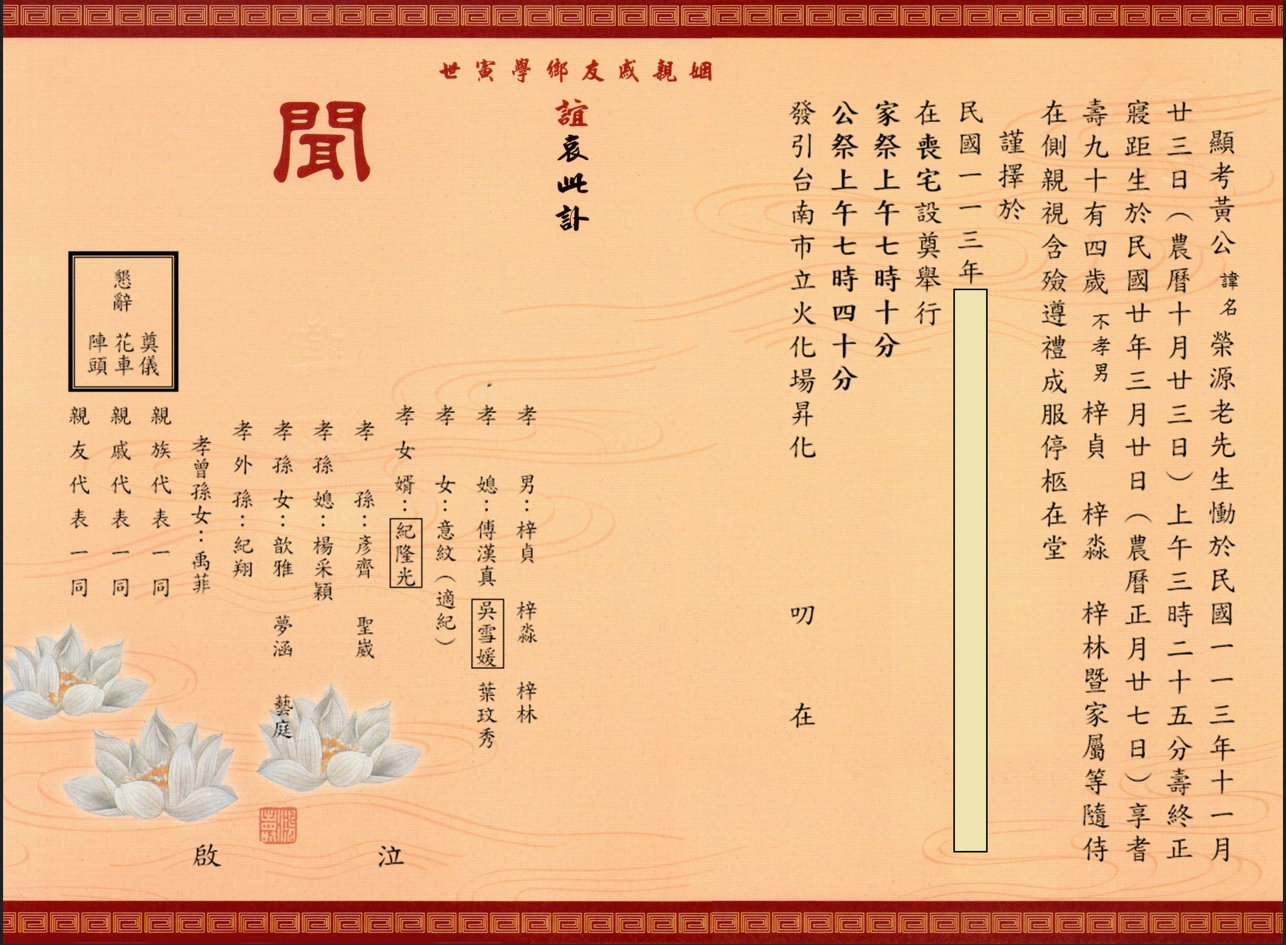 顯考黃公諱名榮源老先生慟於民國一一三年十一月
廿三日（農曆十月廿三日）上午三時二十五分壽終正
寢距生於民國廿年三月廿日（農曆正月廿七日）享耆
壽九十有四歲不孝男梓貞 梓淼 梓林暨家屬等隨侍
在側親視含殮遵禮成服停柩在堂
謹擇於
民國一一三年
在喪宅設奠舉行
家祭上午七時十分
公祭上午七時四十分
發引台南市立火化場昇化
叨 在
姻親戚友鄉學寅世
誼哀此訃
聞
孝男：梓貞 梓淼 梓林
孝媳：傅漢真 吳雪媛 葉玟秀
孝女：意紋（適紀）
孝女婿：紀隆光
孝孫：彥齊 聖崴
孝孫媳：楊采穎
孝孫女：歆雅 夢涵 藝庭
孝外孫：紀翔
孝曾孫女：禹菲
親族代表一同
親戚代表一同
親友代表一同
懇辭
奠儀
花車
陣頭
泣 啟